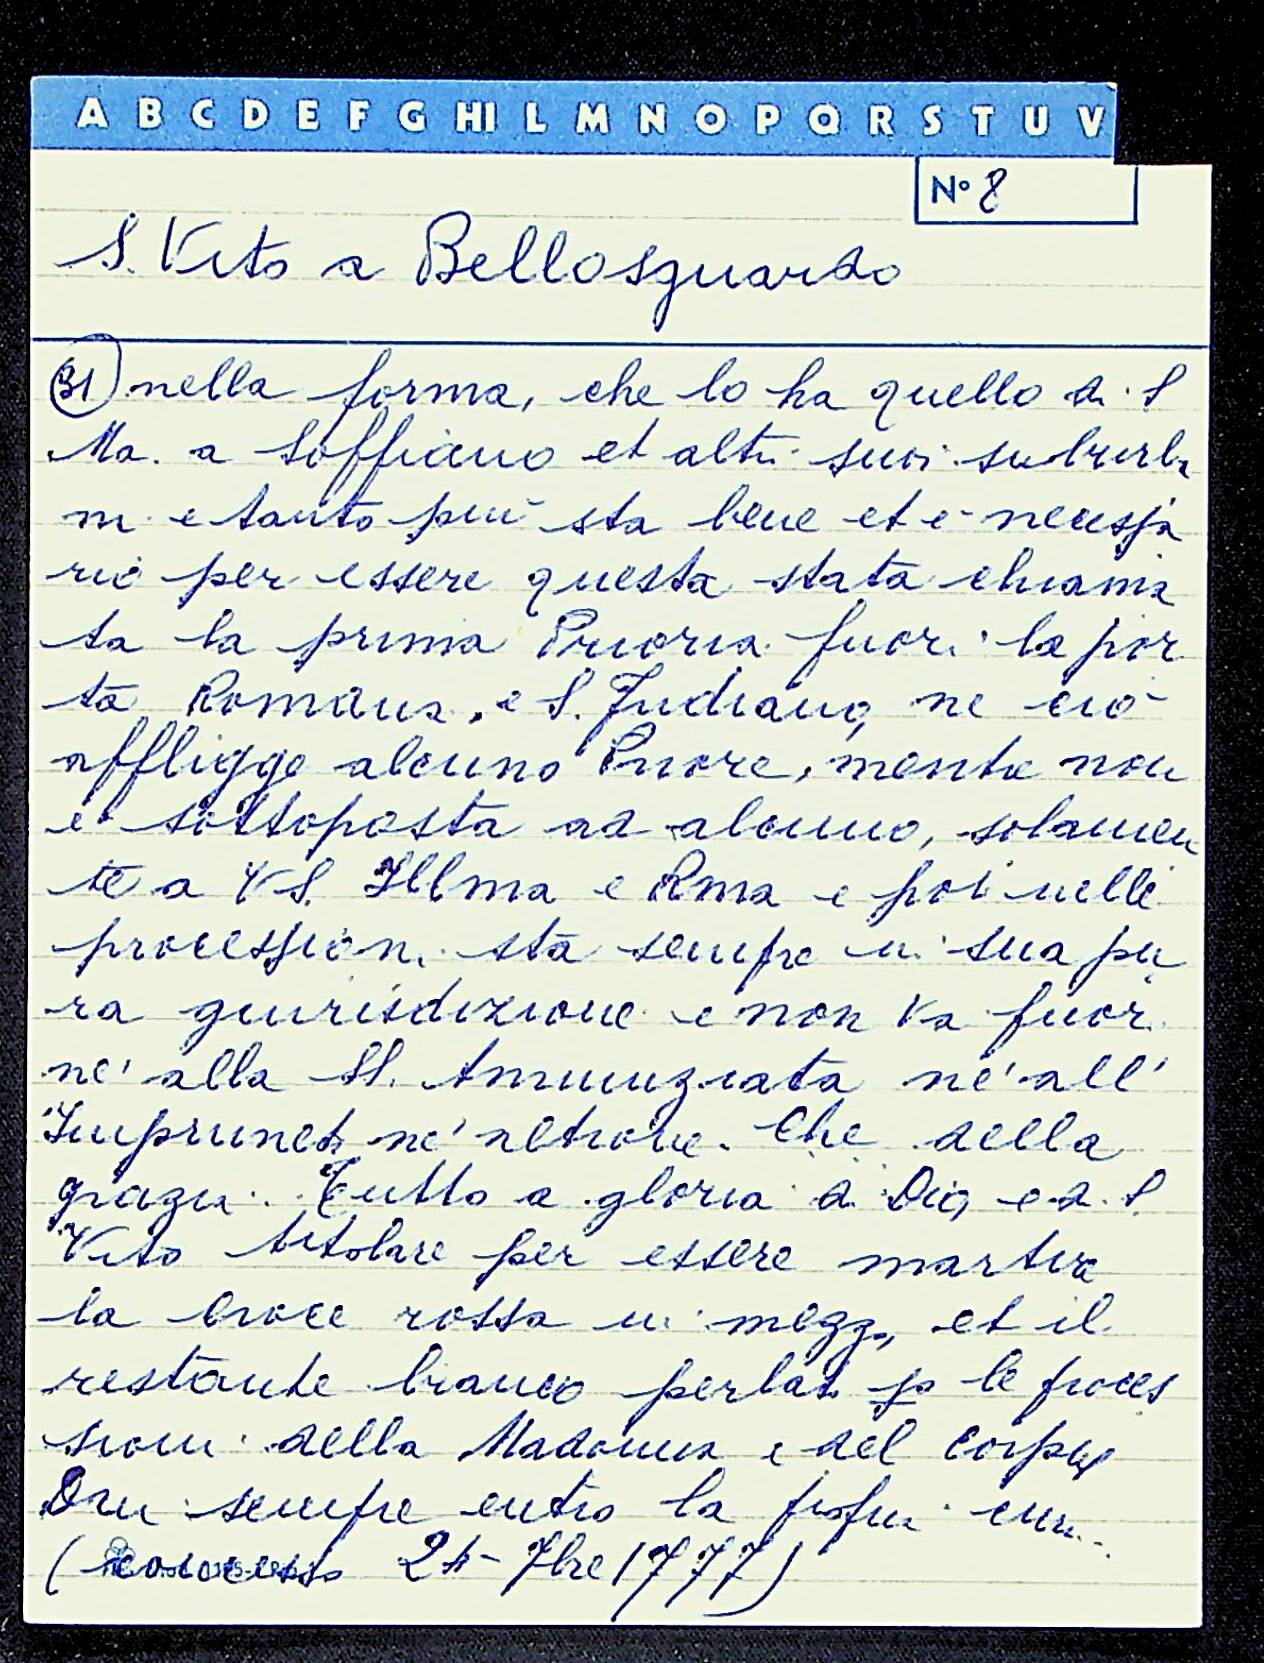 A B C D E F G HI L M N O P Q R S T U V
N° 8
S. Vito a Bellosguardo
31) nella forma, che lo ha quello di S
Ma. a Soffiano et altri suoi suburba
ni e tanto più sta bene et è necessa
rio per essere questa stata chiama
ta la prima Prioria fuori la por
ta Romana, e S. Frediano, ne ciò
affligge alcuno Priore, mentre non
è sottoposta ad alcuno, solamen
te a VS. Illma e Rma e poi nelle
processioni sta sempre in sua pu
ra giurisdizione e non va fuori
né alla SS. Annunziata né all'
Impruneta né altrove. Che della
grazia. Tutto a gloria di Dio, e di S.
Vito titolare per essere martire
la croce rossa in mezzo, et il
restante bianco per le proces
sioni della Madonna e del Corpus
Dni sempre entro la cura
(concesso 24 7bre 1777)